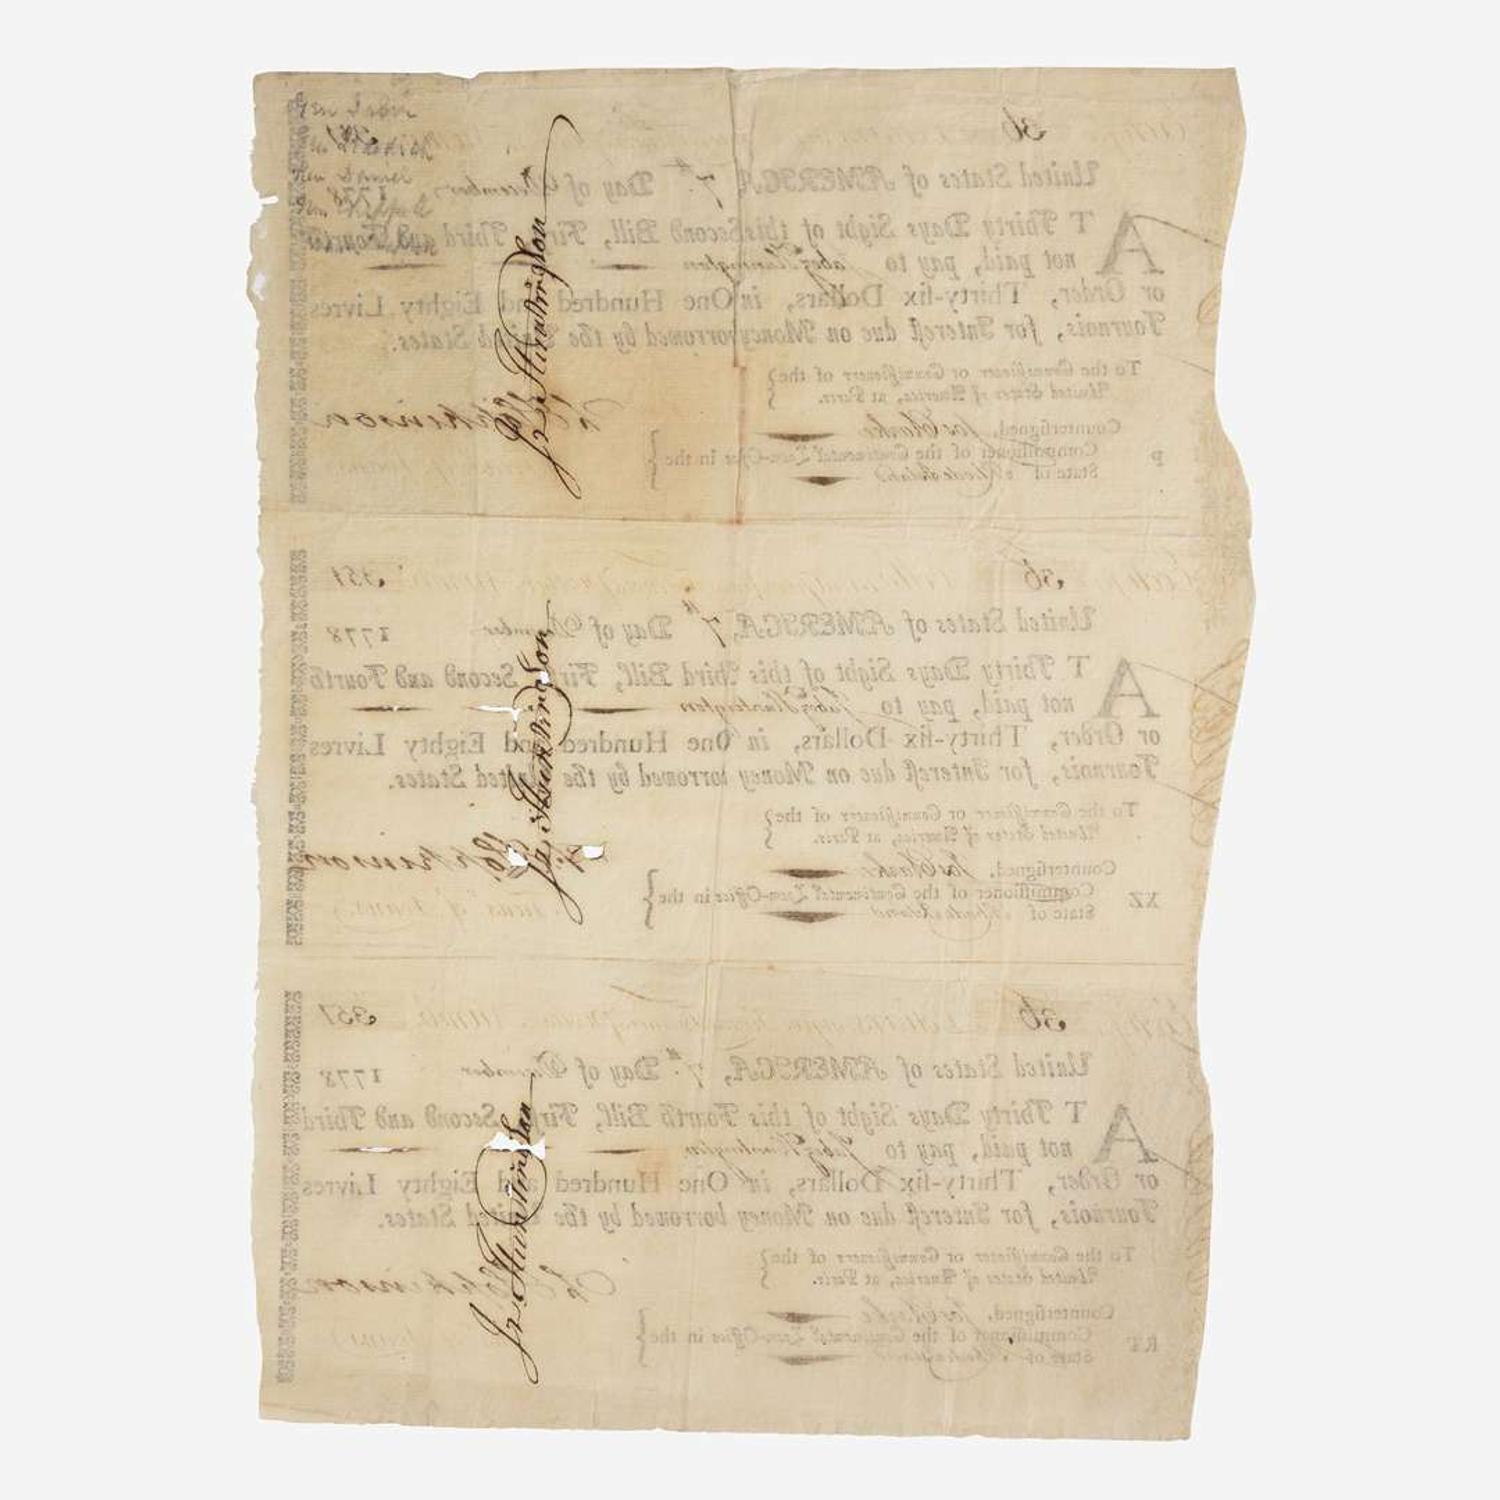 36 351
United States of AMERICA, 7th Day of December, 1778
AT Thirty Days Sight of this Second Bill, First, Third and Fourth
not paid, pay to Jabez Huntington
or Order, Thirty-six Dollars, in One Hundred and Eighty Livres
Tournois, for Interest due on Money borrowed by the United States.
To the Commissioner or Commissioners of the
United States of America, at Paris.
Countersigned, Jos Clarke
Commissioner of the Continental Loan-Office in the
State of Rhode Island
P
Hopkinson
Jz Huntington
36 351
United States of AMERICA, 7th Day of December 1778
AT Thirty Days Sight of this Third Bill, First, Second and Fourth
not paid, pay to Jabez Huntington
or Order, Thirty-six Dollars, in One Hundred and Eighty Livres
Tournois, for Interest due on Money borrowed by the United States.
To the Commissioner or Commissioners of the
United States of America, at Paris.
Countersigned, Jos Clarke
Commissioner of the Continental Loan-Office in the
State of Rhode Island
XZ
F. Hopkinson
Jz Huntington
36 351
United States of AMERICA, 7th Day of December 1778
AT Thirty Days Sight of this Fourth Bill, First, Second and Third
not paid, pay to Jabez Huntington
or Order, Thirty-six Dollars, in One Hundred and Eighty Livres
Tournois, for Interest due on Money borrowed by the United States.
To the Commissioner or Commissioners of the
United States of America, at Paris.
Countersigned, Jos Clarke
Commissioner of the Continental Loan-Office in the
State of Rhode Island
RT
Hopkinson
Jz Huntington